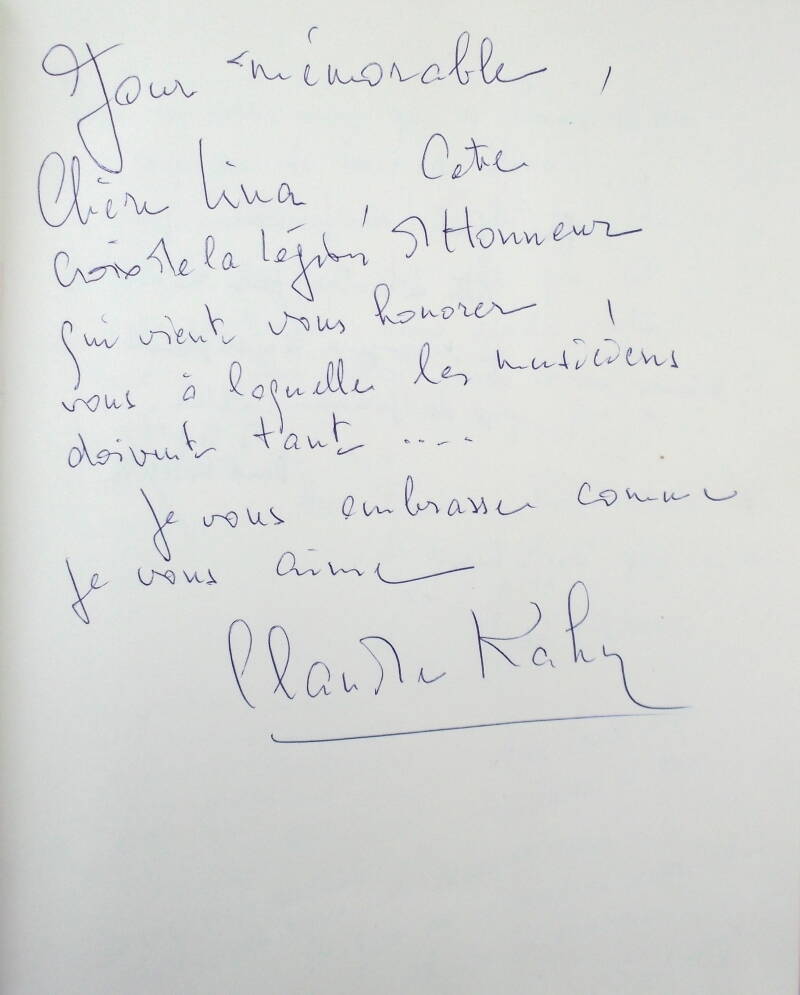 Jour mémorable,
Chère Lina, Cette
Croix de la Légion d'Honneur
qui vient vous honorer,
vous à laquelle les musiciens
doivent tant .....
Je vous embrasse comme
je vous aime
Claude Kahn